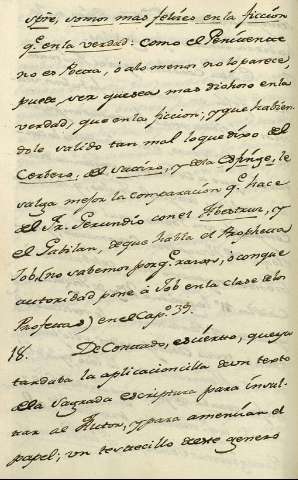 spre, somos mas felices en la ficcion
q.e en la verdad: como el Penitente
no es Poeta, ô alo menos no lo parece,
puede ser que sea mas dichoso en la
verdad, que en la ficcion; y que habien
dole valido tan mal lo que dixo del
Cerbero, del Satiro, y dela Esphinge, le
valga mejor la comparacion q.e hace
de Fr. Gerundio con el Abestruz, y
el Gabilan, de que habla el Propheta
Job, (no sabemos por q.e razon, ô con que
autoridad pone â Job en la clase de los
Profetas) en el Cap.o 39.
18. De Contado, es cierto, que ya
tardaba la aplicacioncilla de un texto
dela Sagrada escriptura para insul-
tar al Autor, y para amenizar el
papel; un textecillo de este genero